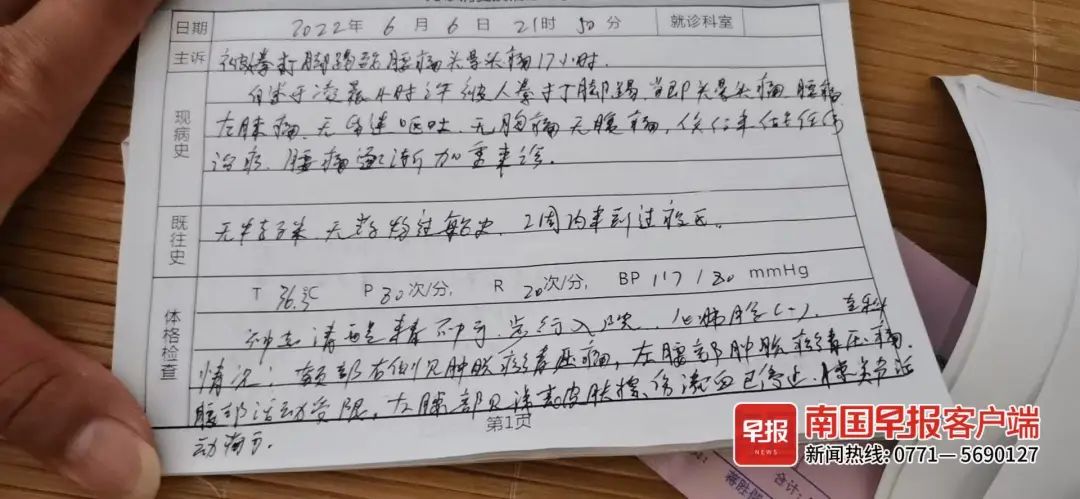 日期 2022年 6月 6日 21时 50分 就诊科室
主诉 被拳打脚踢致腰痛头晕头痛17小时.
现病史 自述于凌晨4小时许被人拳打脚踢,当即头晕头痛.腰痛
左膝痛.无呕吐.无胸痛无腹痛,
治疗.腰痛逐渐加重来诊.
既往史 无药物过敏史.2周内未到过疫区.
体格检查 T 36.5℃ P 80次/分, R 20次/分 BP 117/80 mmHg
神志清楚精神可,步行入院.心肺腹(-).专科
情况:额部右侧见肿胀 压痛,左腰部肿胀 压痛.
腰部活动受限,左膝部见浅表皮肤擦伤渗血已停止.膝关节活
动尚可.
第1页
早报
NEWS
南国早报客户端
新闻热线: 0771—5690127
合计: